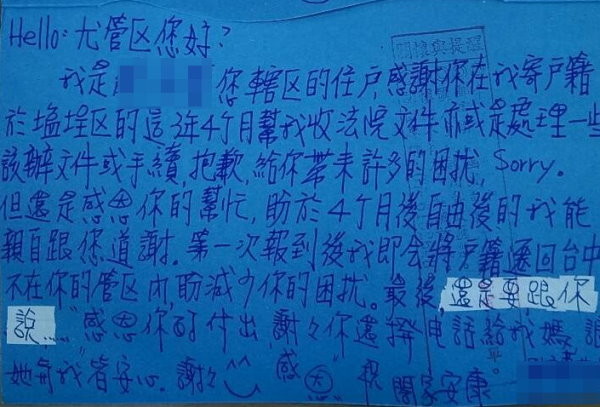 Hello:尤管区您好?
我是 您轄区的住戶感謝你在我寄戶籍
於塩埕区的這3年4个月幫我收法院文件亦或是處理一些
該辦文件或手續,抱歉,給你帶来許多的困扰, Sorry。
但還是感恩你的幫忙,盼於4个月後自由後的我能
親自跟您道謝.第一次報到後我即会將戶籍遷回台中
不在你的管区內,盼減少你的困扰。最後,還是要跟你
說……"感恩你的付出 謝々你還撥電話給我媽 讓
她與我"皆安心. 謝々 感恩 祝 闔家安康